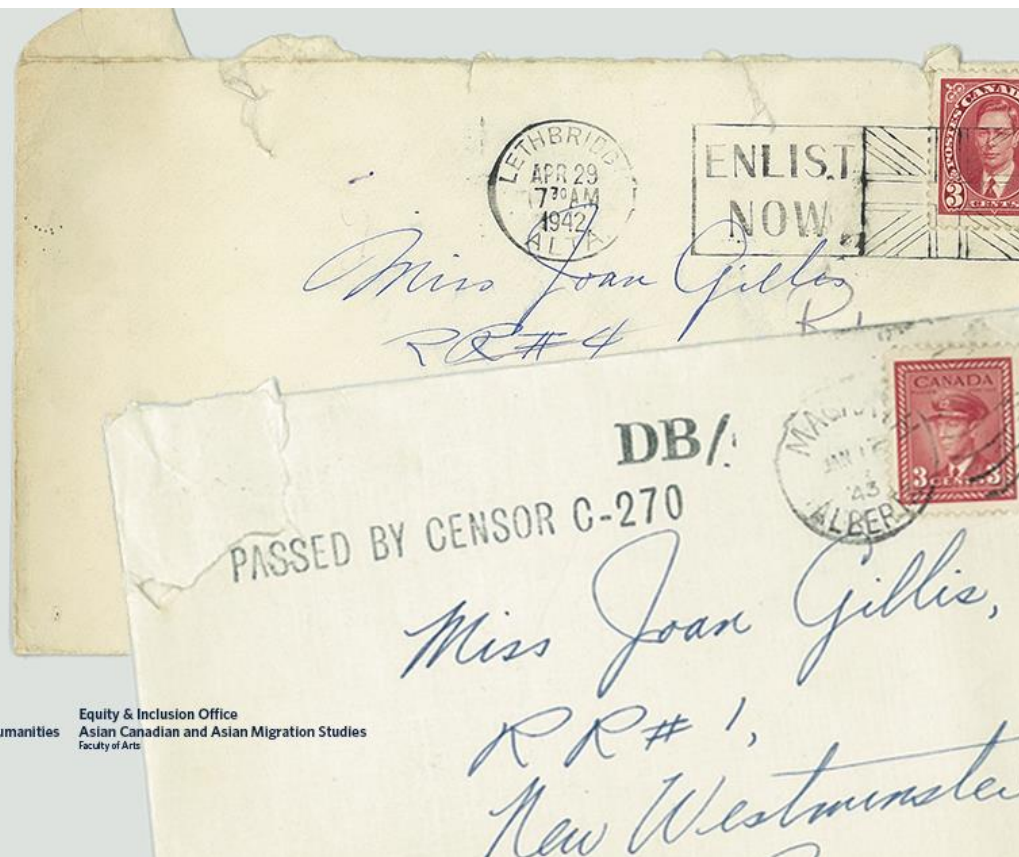 LETHBRIDGE
APR 29
7³⁰ AM
1942
ALTA
ENLIST
NOW
POSTES CANADA
3 CENTS
Miss Joan Gillis
RR#4
CANADA
3 CENTS 3
DB/
JAN
'43
PASSED BY CENSOR C-270
Miss Joan Gillis,
RR# 1,
New Westminster
umanities
Equity & Inclusion Office
Asian Canadian and Asian Migration Studies
Faculty of Arts